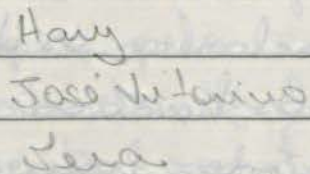 Hary
José Vitorino
Jera